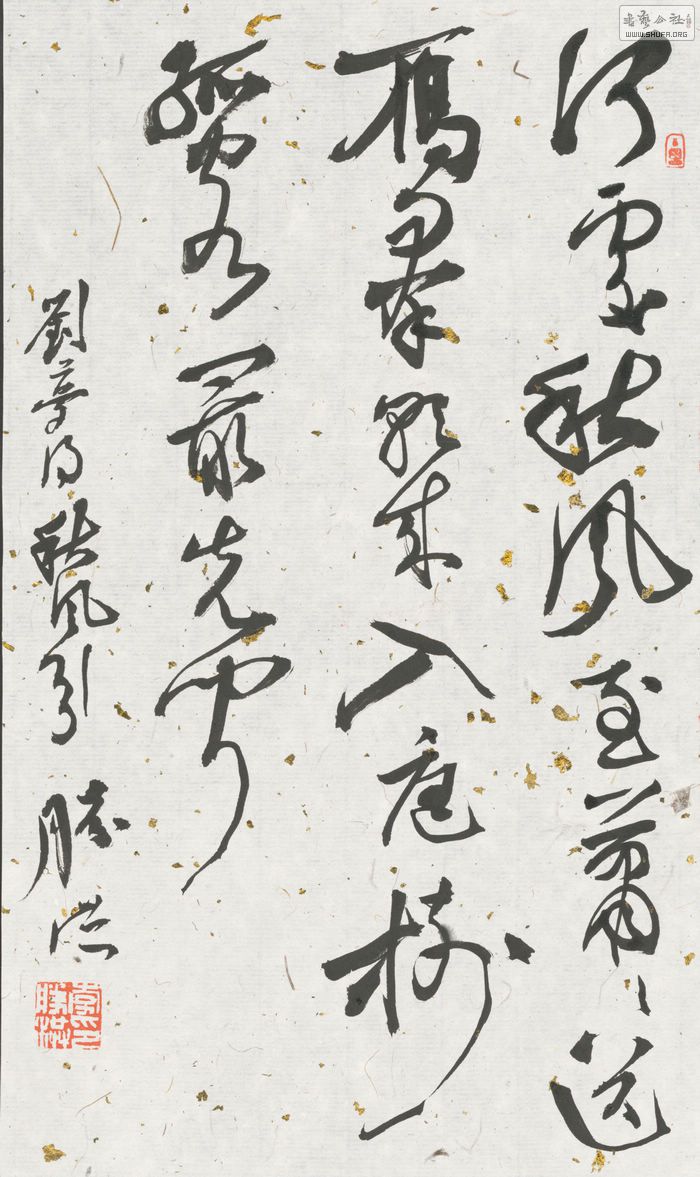 何處秋風至蕭〻送
雁羣朝來入庭樹
孤客最先聞
劉夢得秋風引 勝洪
李印勝洪
書藝公社
WWW.SHUFA.ORG